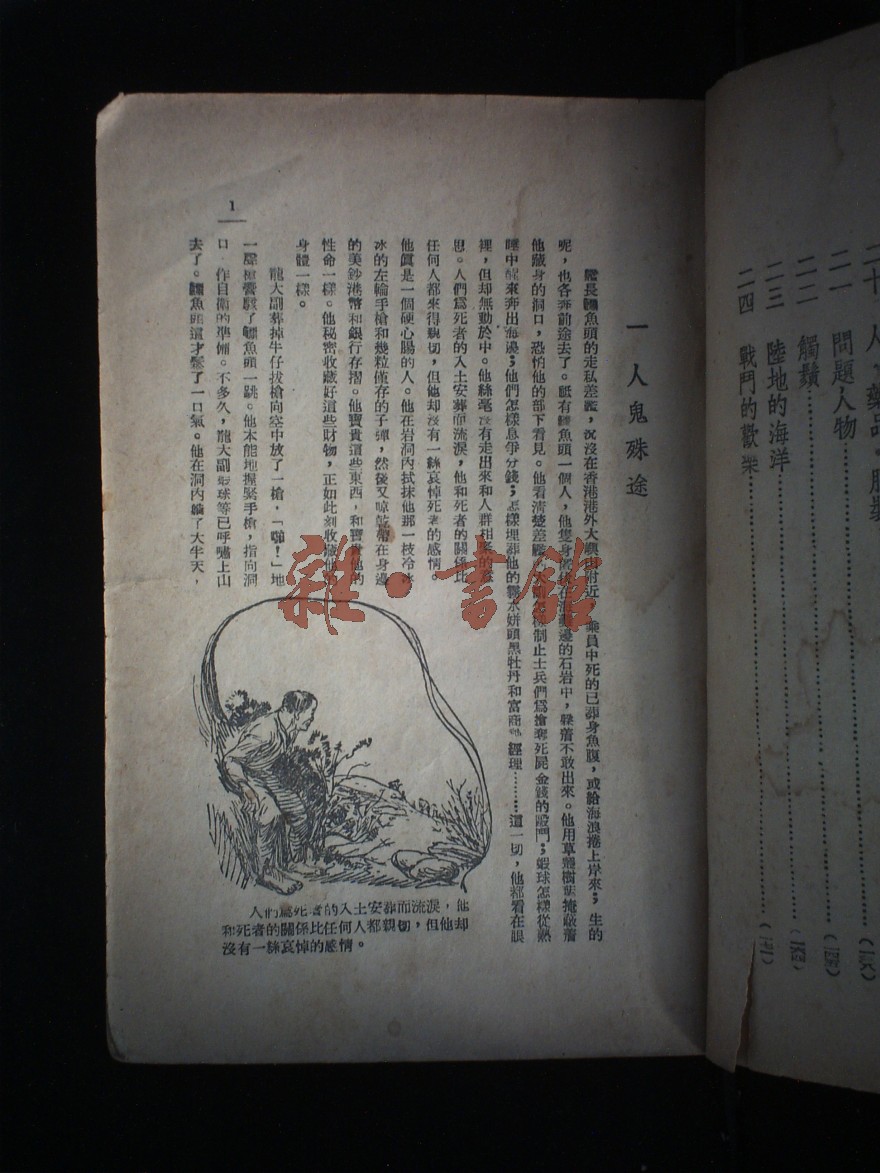 二一 問題人物
二二 觸鬚
二三 陸地的海洋
二四 戰鬥的歡樂
一 人鬼殊途
艦長鱷魚頭的走私差艦,沉沒在香港港外大 附近。乘員中死的已葬身魚腹,或給海浪捲上岸來;生的
呢,也各奔前途去了。祗有鱷魚頭一個人,他隻身 在海 邊的石岩中,躲着不敢出來。他用草 樹葉掩蔽着
他藏身的洞口,恐怕他的部下看見。他看清楚差 制止士兵們爲搶奪死屍金錢的毆鬥;蝦球怎樣從熱
中醒來奔出海邊;他們怎樣息爭分錢;怎樣埋葬他的霧水姘頭黑牡丹和富商 經理………這一切,他都看在眼
裡,但却無動於中。他絲毫沒有走出來和人群相聚的意
思。人們爲死者的入土安葬而流淚,他和死者的關係比
任何人都來得親切,但他却沒有一絲哀悼死者的感情。
他眞是一個硬心腸的人。他在岩洞內拭抹他那一枝冷冰
冰的左輪手槍和幾粒僅存的子彈,然後又晾乾帶在身邊
的美鈔港幣和銀行存摺。他寶貴這些東西,和寶貴他的
性命一樣。他秘密收藏好這些財物,正如此刻收藏他的
身體一樣。
龍大副葬掉牛仔拔槍向空中放了一槍,「啪!」地
一聲槍響駭了鱷魚頭一跳。他本能地握緊手槍,指向洞
口,作自衛的準備。不多久,龍大副蝦球等已呼嘯上山
去了。鱷魚頭這才鬆了一口氣。他在洞內躺了大半天,
人們爲死者的入土安葬而流淚,他
和死者的關係比任何人都親切,但他却
沒有一絲哀悼的感情。
1
雜·書館